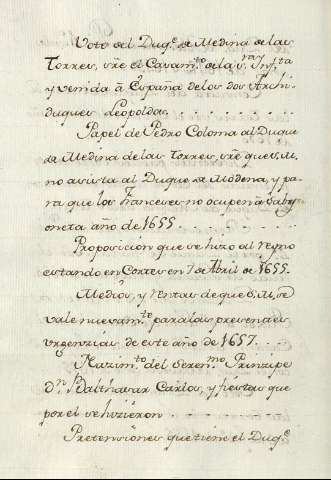 Voto del Duq.e de Medina de las
Torres, sre el Casam.to de la s.ra Inf.ta
y venida à España de los dos Archi-
duques Leopoldos.
Papel de Pedro Coloma al Duque
de Medina de las Torres, sre que S.M.
no asista al Duque de Modena, y pa-
ra que los Franceses no ocupen à Sabio-
neta año de 1655.
Proposicion que se hizo al Reyno
estando en Cortes en 7 de Abril de 1655.
Medios, y rentas de que S.M. se
vale nuevam.te para las presentes
urgenzias de este año de 1657.
Nazim.to del Seren.mo Prinzipe
D.n Balthasar Carlos, y fiestas que
por el se hizieron.
Pretensiones que tiene el Duq.e